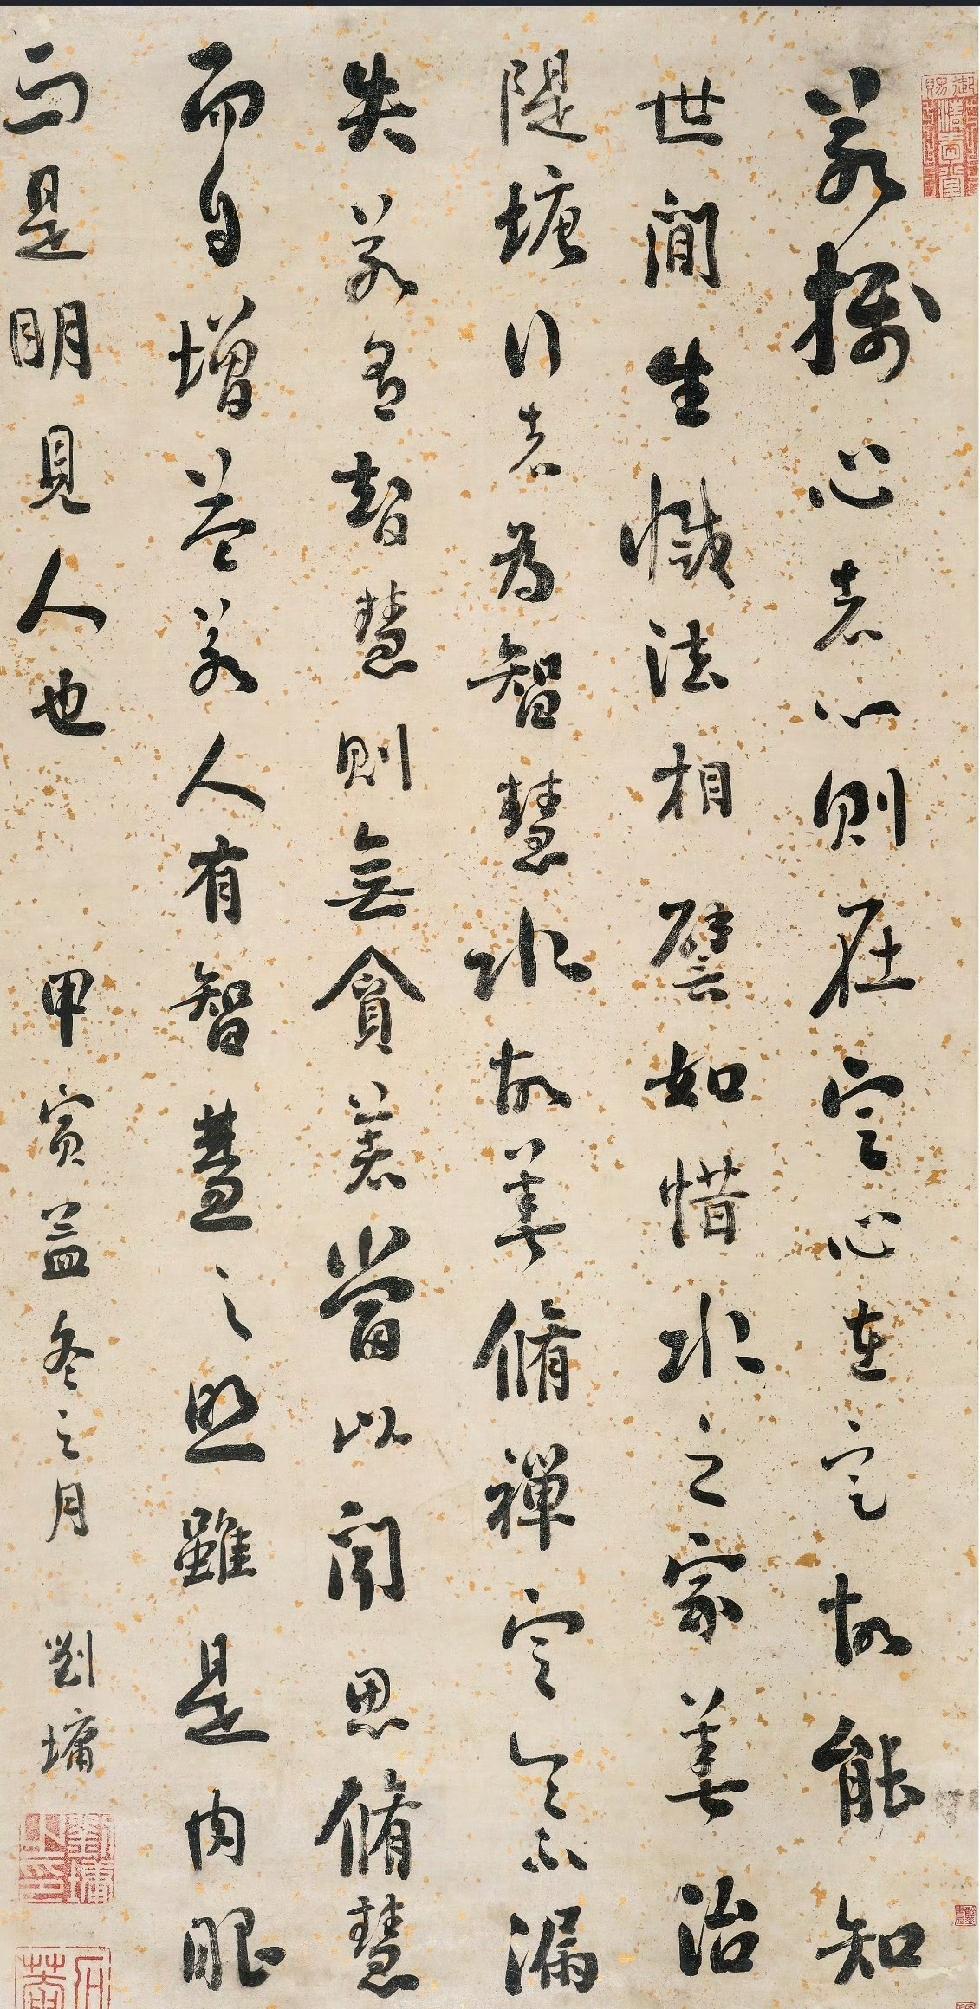 若攝心者心則在定心在定故能知
世間生滅法相譬如惜水之家善治
隄塘行者為智慧水故善脩禪定令不漏
失若有智慧則無貪著當以聞思脩慧
而自增益若人有智慧之照雖是肉眼
而是明見人也 甲寅益冬之月 劉墉
御賜清愛堂
劉墉之印